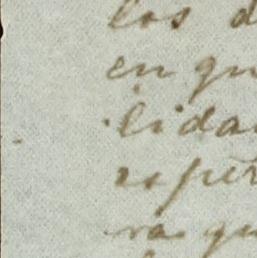 los d
en qu
lidad
esper
rá qu